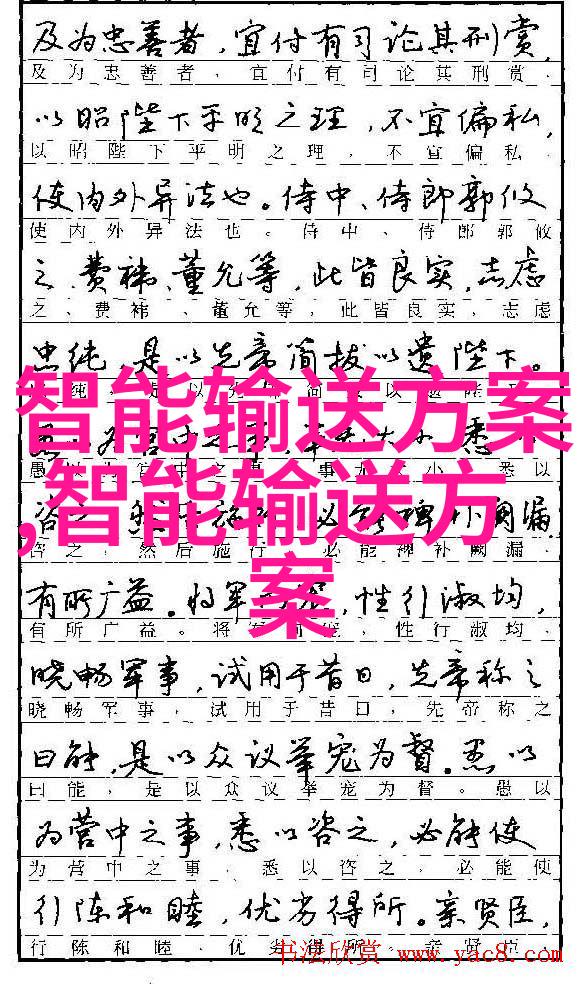 及为忠善者，宜付有司论其刑赏，
及为忠善者，宜付有司论其刑赏．
以昭陛下平明之理，不宜偏私，
以昭陛下平明之理，不宜偏私．
使内外异法也。侍中、侍郎郭攸
使内外异法也。侍中、侍郎郭攸
之、费祎、董允等，此皆良实，志虑
之、费祎、董允等，此皆良实，志虑
忠纯，是以先帝简拔以遗陛下。
智能输送方案
,智能输送方
案
愚以为宫中之事，事无大小，悉以
咨之，然后施行，必能裨补阙漏，
咨之，然后施行，必能裨补阙漏．
有所广益。将军向宠，性行淑均，
有所广益。将军向宠，性行淑均．
晓畅军事，试用于昔日，先帝称之
晓畅军事，试用于昔日，先帝称之
曰能，是以众议举宠为督。愚以
曰能，是以众议举宠为督。愚以
为营中之事，悉以咨之，必能使
为营中之事．悉以咨之，必能使
行陈和睦，优劣得所。亲贤臣，
行陈和睦．优劣得所．亲贤臣．
书法欣赏 www.yac8.com